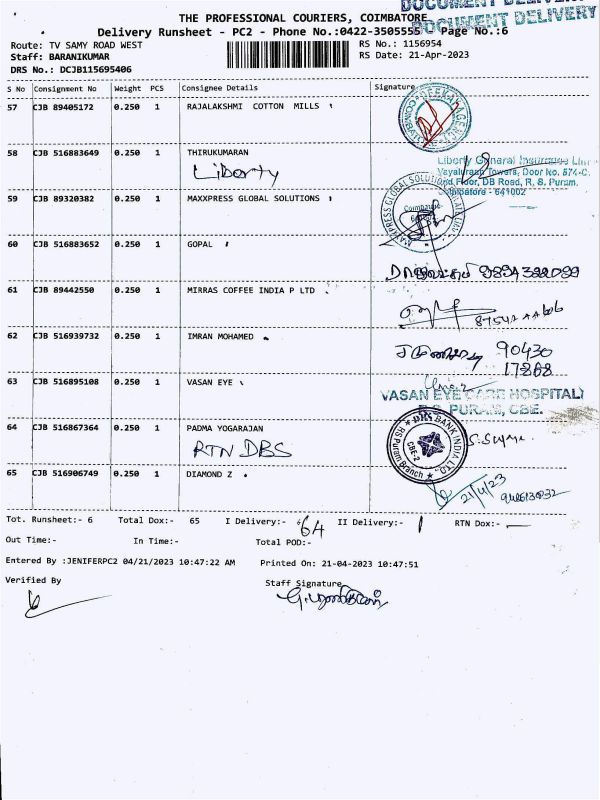 DOCUMENT DELIVERY
DOCUMENT DELIVERY
THE PROFESSIONAL COURIERS, COIMBATORE
Delivery Runsheet - PC2 - Phone No.:0422-3505555 Page No.:6
Route: TV SAMY ROAD WEST RS No.: 1156954
Staff: BARANIKUMAR RS Date: 21-Apr-2023
DRS No.: DCJB115695406
S No Consignment No Weight PCS Consignee Details Signature
57 CJB 89405172 0.250 1 RAJALAKSHMI COTTON MILLS
58 CJB 516883649 0.250 1 THIRUKUMARAN
Liberty
Liberty General Insurance
Towers, Door No. 574-C,
2nd Floor, DB Road, R. S. Puram,
Coimbatore - 641002
59 CJB 89320382 0.250 1 MAXXPRESS GLOBAL SOLUTIONS
MAXXPRESS GLOBAL SOLUTIONS
Coimbatore
60 CJB 516883652 0.250 1 GOPAL
61 CJB 89442550 0.250 1 MIRRAS COFFEE INDIA P LTD
62 CJB 516939732 0.250 1 IMRAN MOHAMED
90430
17868
63 CJB 516895108 0.250 1 VASAN EYE
VASAN EYE CARE HOSPITAL
R.S. PURAM, CBE.
64 CJB 516867364 0.250 1 PADMA YOGARAJAN
RTN DBS
DBS BANK INDIA LTD.
RS Puram Branch
CBE-2
65 CJB 516906749 0.250 1 DIAMOND Z
21/4/23
Tot. Runsheet:- 6 Total Dox:- 65 I Delivery:- 64 II Delivery:- 1 RTN Dox:- —
Out Time:- In Time:- Total POD:-
Entered By :JENIFERPC2 04/21/2023 10:47:22 AM Printed On: 21-04-2023 10:47:51
Verified By Staff Signature